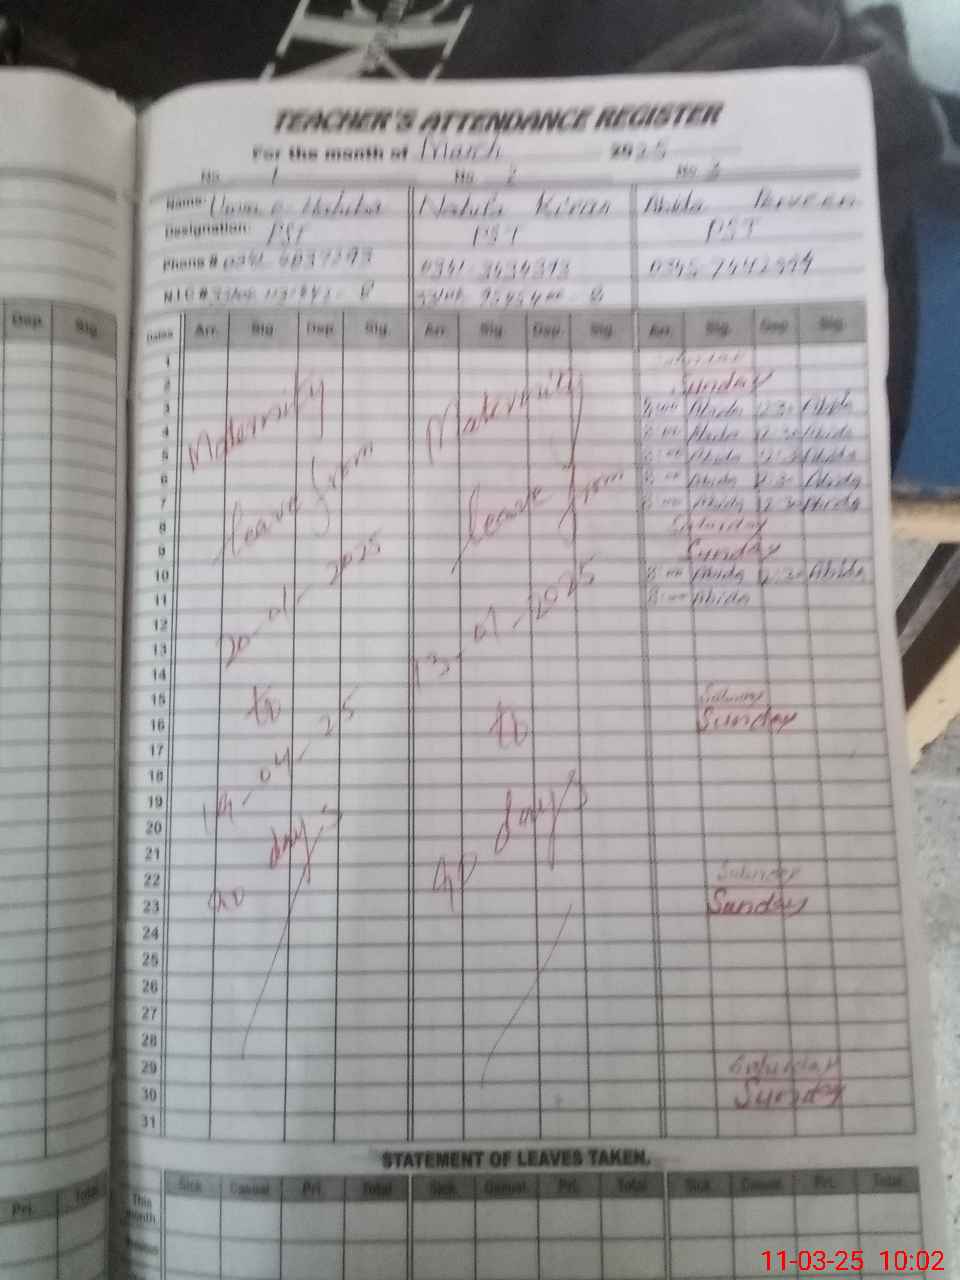 TEACHER'S ATTENDANCE REGISTER
For the month of March 2025
No. 1 No. 2 No. 3
Name: Nabila Kiran Abida Perveen
Designation: PST PST PST
Phone #
N.I.C #
Dep. Sig.
Dates Arr. Sig. Dep. Sig. Arr. Sig. Dep. Sig. Arr. Sig. Dep. Sig.
1 Saturday
2 Sunday
3 8:00 Abida 12:30 Abida
4 8:00 Abida 12:30 Abida
5 8:00 Abida 12:30 Abida
6 8:00 Abida 12:30 Abida
7 8:00 Abida 12:30 Abida
8 Saturday
9 Sunday
10 8:00 Abida 12:30 Abida
11 8:00 Abida
12
13
14
15 Saturday
16 Sunday
17
18
19
20
21
22 Saturday
23 Sunday
24
25
26
27
28
29 Saturday
30 Sunday
31
Maternity
leave from
20-01-2025
to
19-04-25
90 days
Maternity
leave from
13-01-2025
to
90 days
STATEMENT OF LEAVES TAKEN.
Sick Casual Pri. Total Sick Casual Pri. Total Sick Casual Pri. Total
Pri. Total
This month
11-03-25 10:02